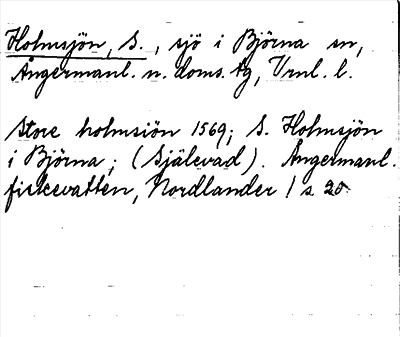 Holmsjön, S., sjö i Björna sn,
Ångermanl. n. doms. tg, Vrnl. l.
Store holmsiön 1569; S. Holmsjön
i Björna; (Själevad). Ångermanl.
fiskevatten, Nordlander / s 20.